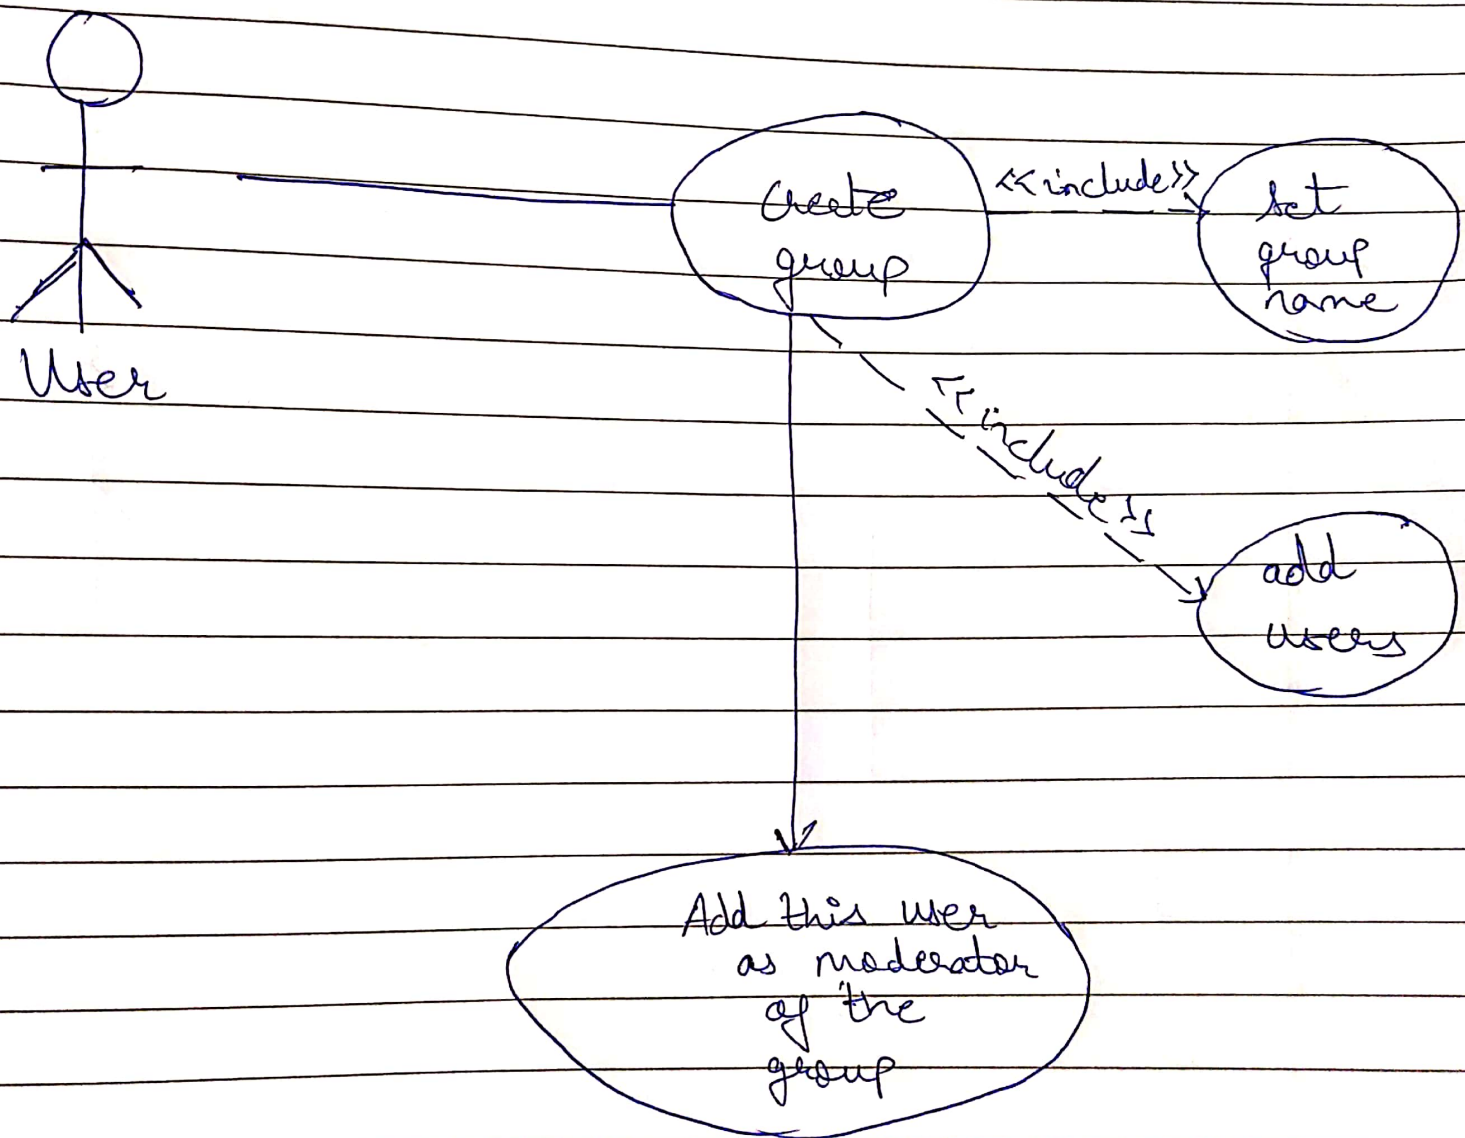 User
Create
group
<<include>>
set
group
name
<<include>>
add
users
Add this user
as moderator
of the
group